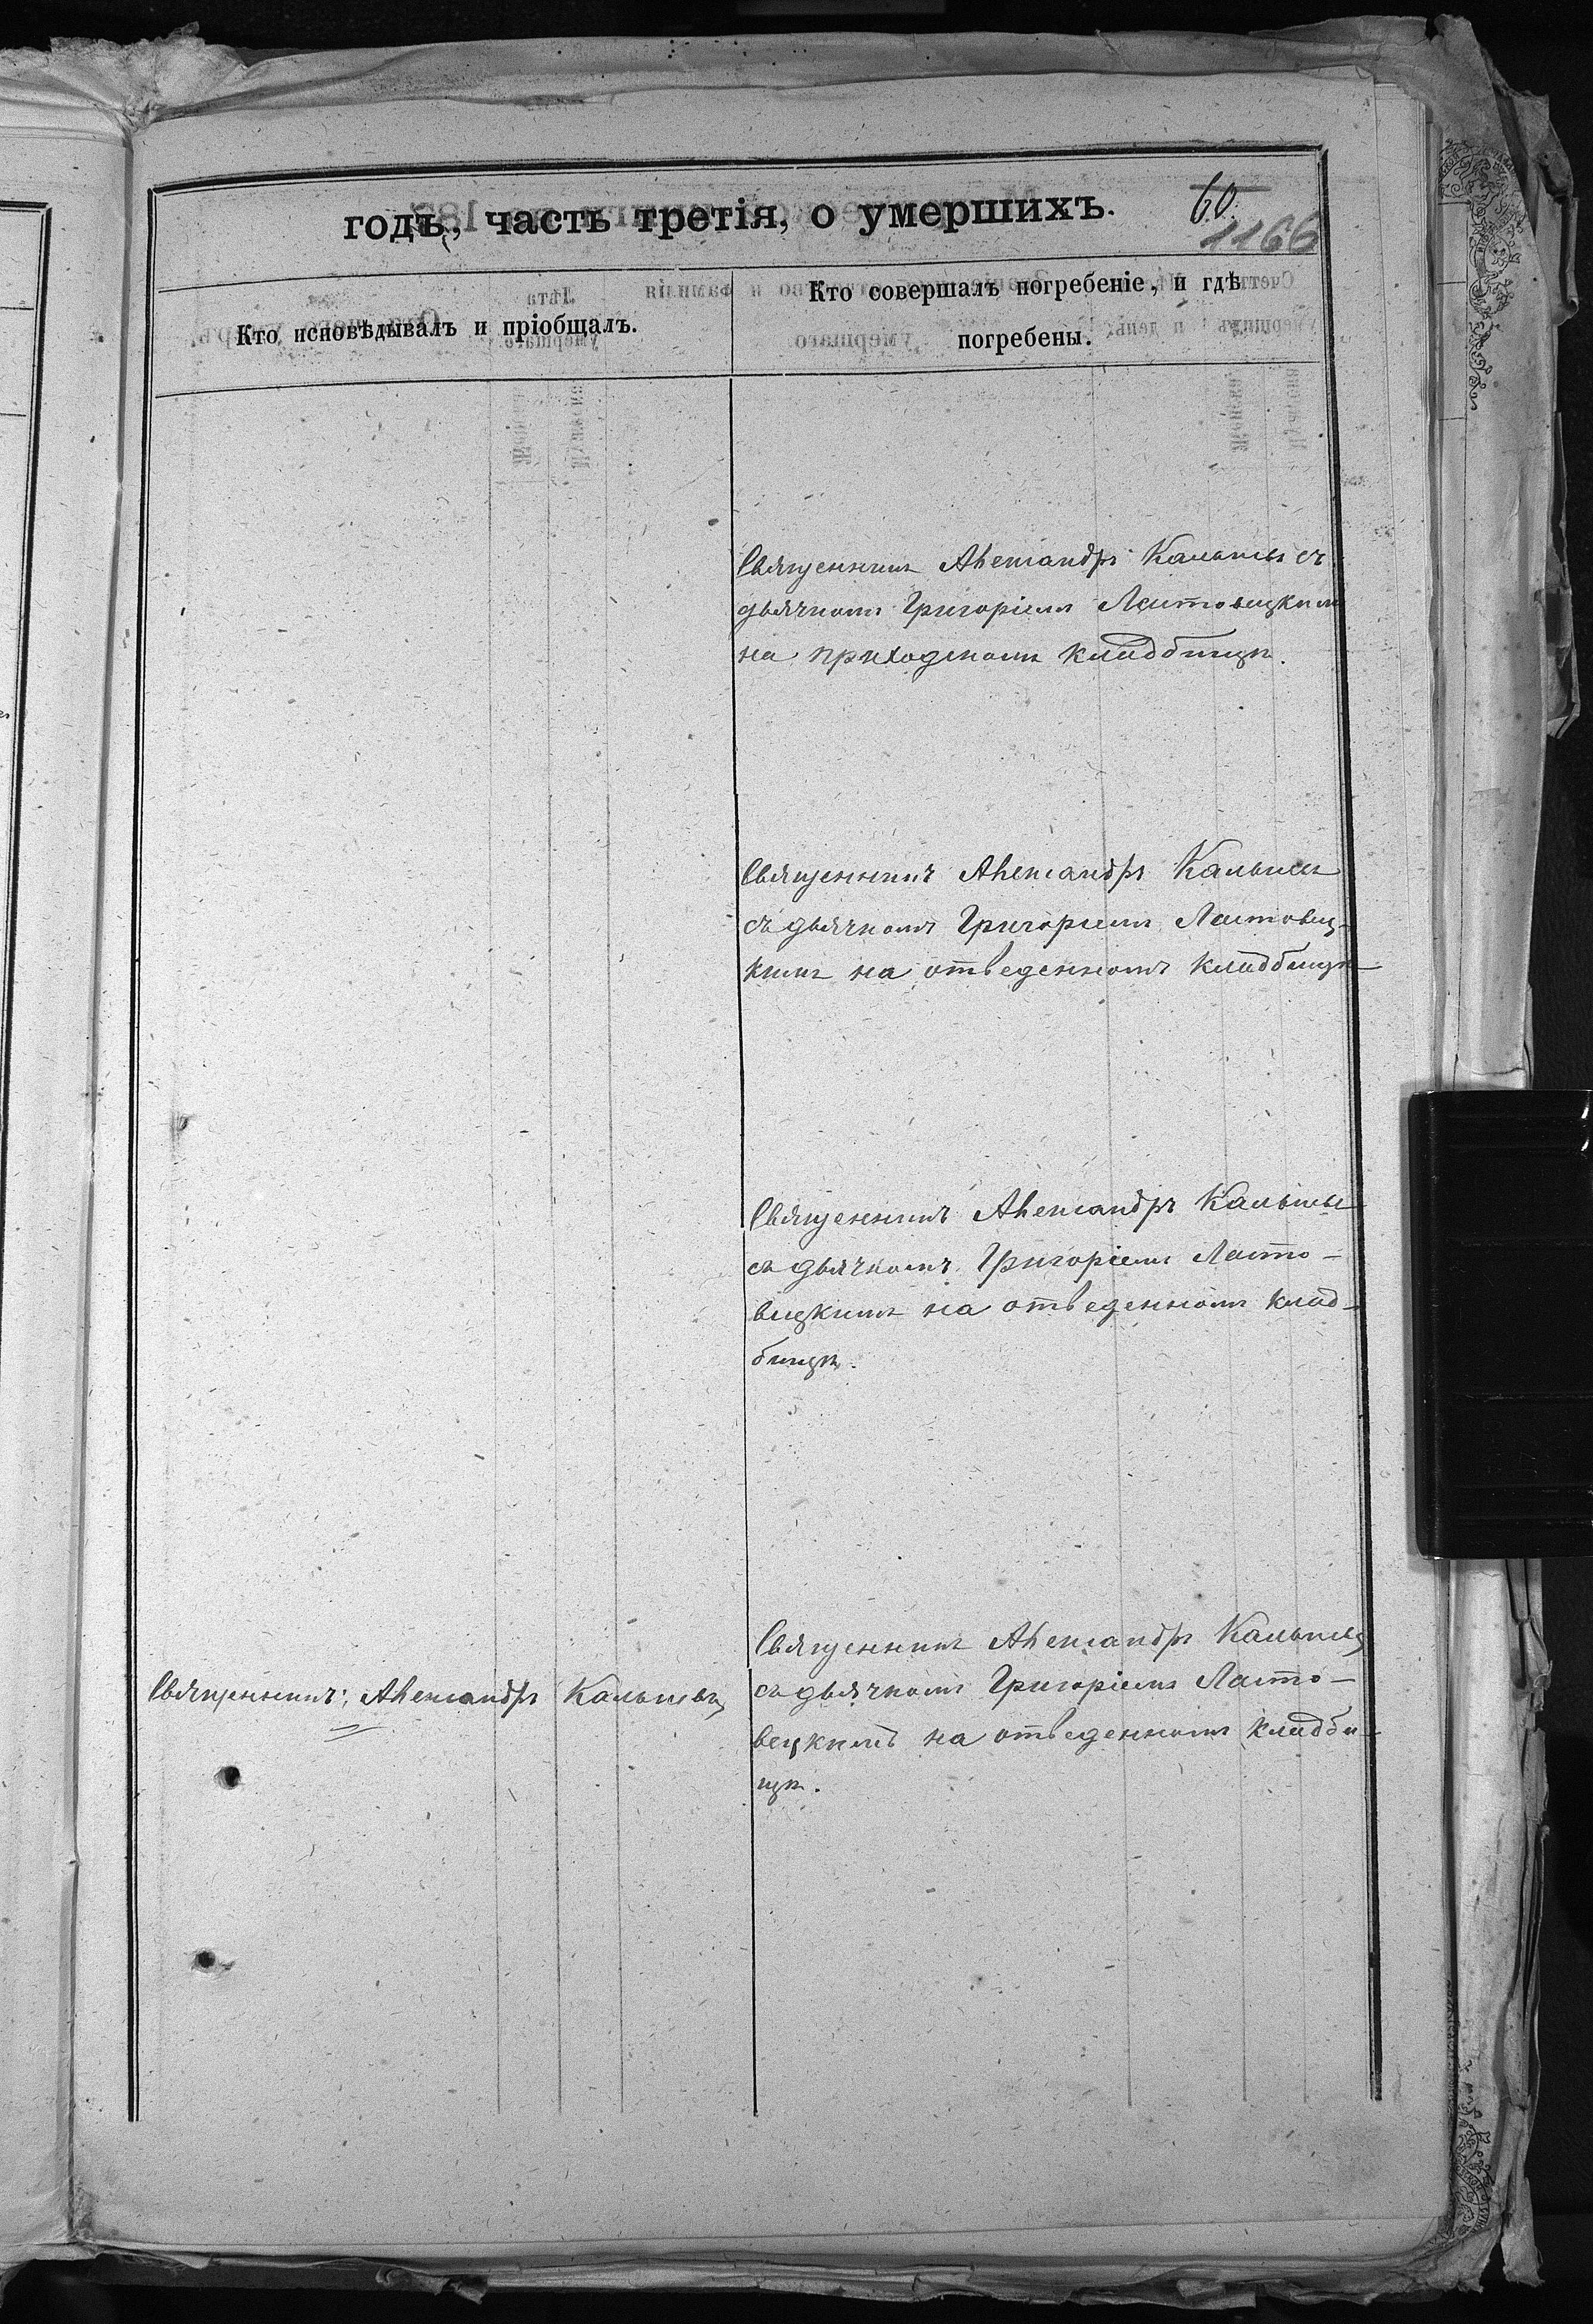 годъ, часть третія, о умершихъ.
60.
1166
Кто исповѣдывалъ и пріобщалъ.
Кто совершалъ погребеніе, и гдѣ
погребены.
Священникъ Александръ съ
дьячкомъ Григоріемъ Лястовецкимъ
на приходскомъ кладбищѣ.
Священникъ Александръ
съ дьячкомъ Григоріемъ Лястовец-
кимъ на отведенномъ кладбищѣ
Священникъ Александръ
съ дьячкомъ Григоріемъ Лясто-
вецкимъ на отведенномъ клад-
бищѣ.
Священникъ Александръ
Священникъ Александръ
съ дьячкомъ Григоріемъ Лясто-
вецкимъ на отведенномъ кладби-
щѣ.